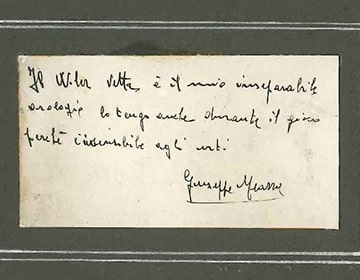 Il Wyler Vetta è il mio inseparabile
orologio lo tengo anche durante il gioco
perchè insensibile agli urti
Giuseppe Meazza